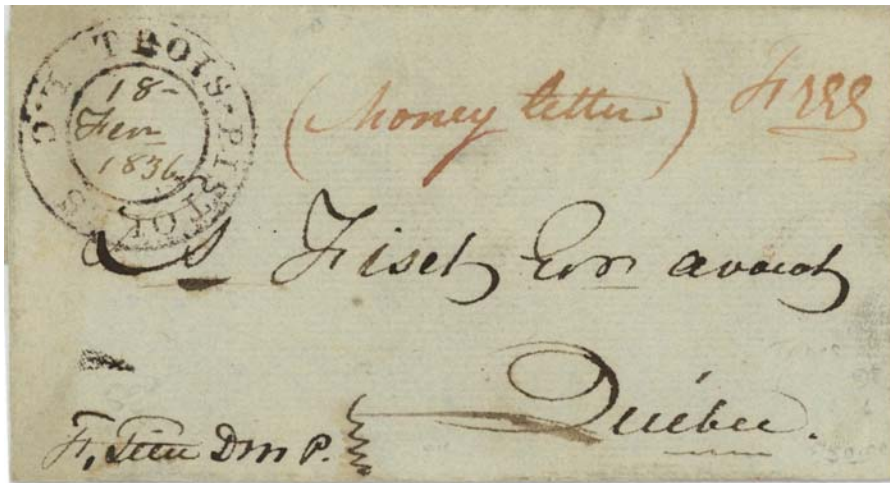 TROIS-PISTOLES
18-
Fev
1836
(Money letter) Free
Ls Fiset Ecr. avocat
Québec.
F, Têtu D M P.